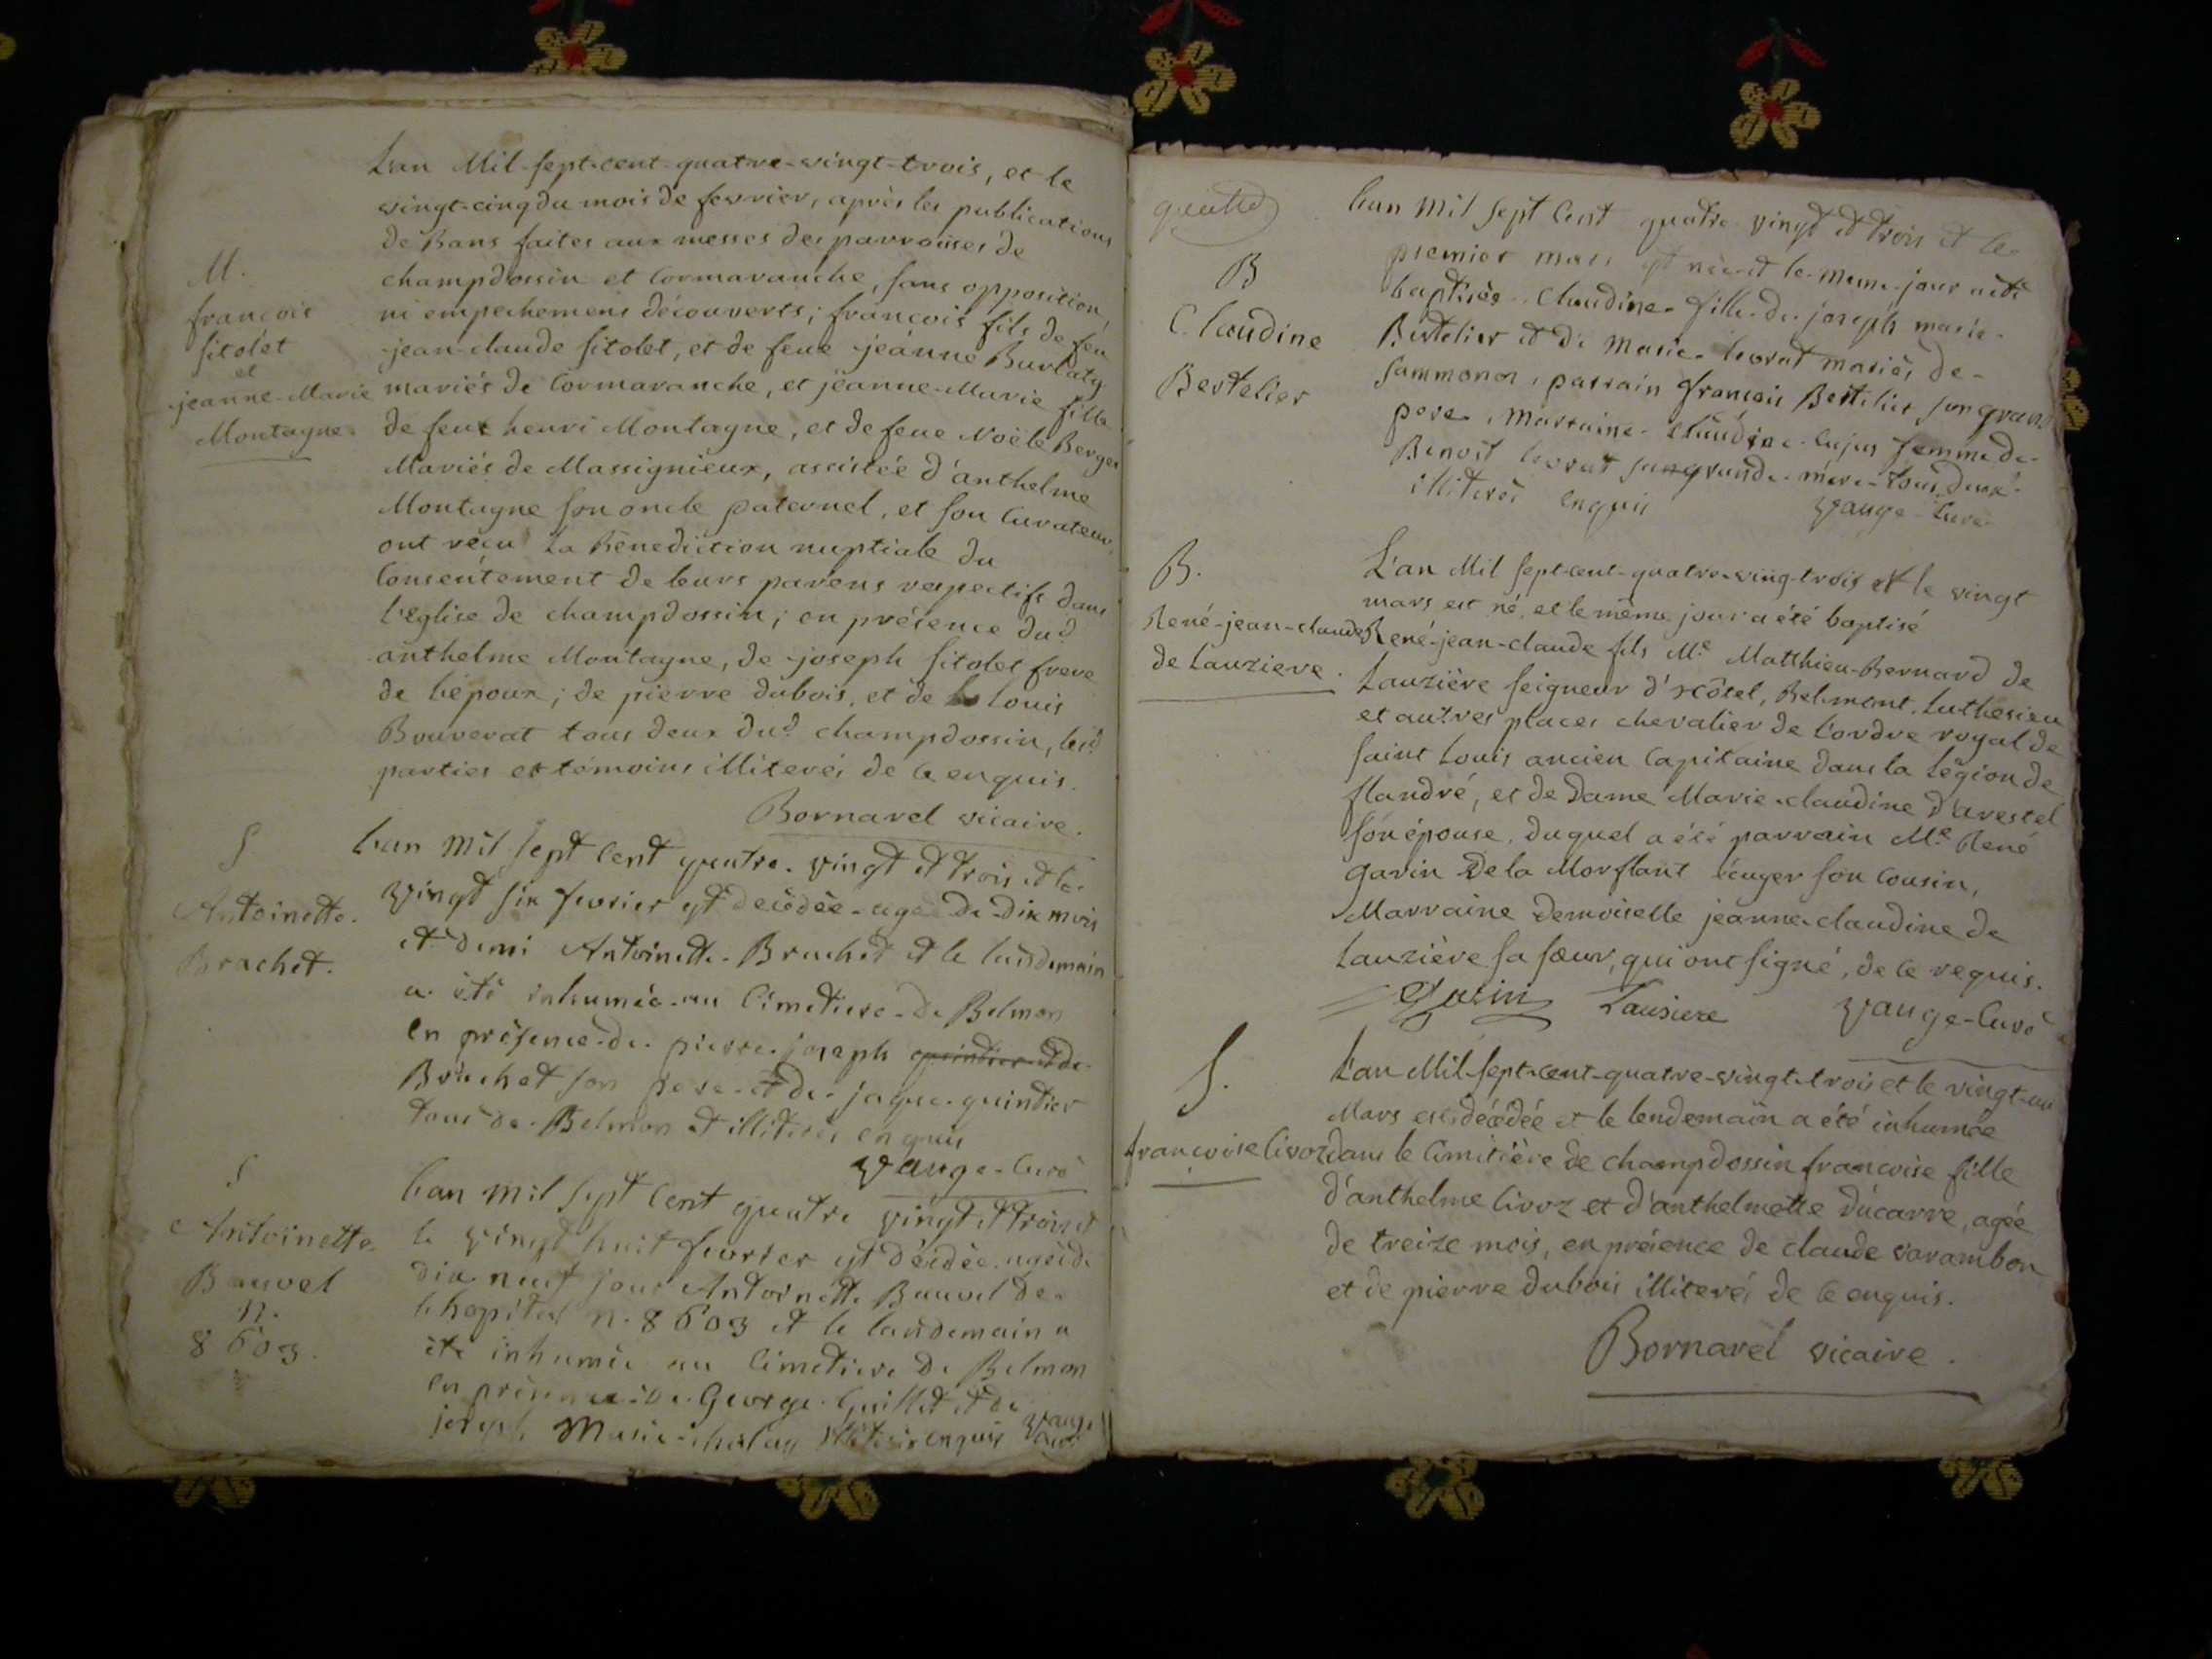 M.
francois
sitolet
et
jeanne-Marie
Montagne
L'an Mil-sept-cent-quatre-vingt-trois, et le
vingt-cinq du mois de fevrier, après les publications
de Bans faites aux messes des parroisses de
champdossin et Cormaranche, sans opposition,
ni empechemens découverts; francois fils de feu
jean-claude sitolet, et de feue jeanne Burlaty
mariés de Cormaranche, et jeanne-Marie fille
de feu henri Montagne, et de feue Noële Berger
Mariés de Massignieux, assistée d'anthelme
Montagne son oncle paternel, et son Curateur,
ont reçu La Bénédiction nuptiale du
Consentement de leurs parens respectifs dans
l'eglise de champdossin; en présence dud.
anthelme Montagne, de joseph sitolet frere
de l'époux; de pierre dubois, et de Louis
Bouverat tous deux dud. champdossin, lesd.
parties et témoins illiterés de ce enquis.
Bornarel vicaire.
S
Antoinette
Brachet.
L'an mil sept Cent quatre vingt et trois et le
vingt six fevrier est décédée agée de dix mois
et demi Antoinette Brachet et le lendemain
a été inhumée au Cimetiere de Belmon
en présence de pierre joseph quintier et de
Brachet son pere et de jaque quintier
tous de Belmon et illiterés enquis
vauge-Curé
S
Antoinette
Bauvel
n.
8603.
L'an mil sept Cent quatre vingt et trois et
le vingt huit fevrier est décédée agée de
dix neuf jour Antoinette Bauvel de
l'hopital n. 8603 et le landemain a
été inhumée au Cimetiere de Belmon
en présence de George Guillet et de
joseph Marie illiterés enquis vauge
Curé
B
Claudine
Bertelier
L'an mil sept Cent quatre vingt et trois et le
premier mars est née et le meme jour a été
baptisée Claudine fille de joseph marie
Bertelier et de Marie levrat mariés de
sammonor, parrain francois Bertelier son grand
pere, Marraine Claudine Cujas femme de
Benoit levrat sa grande mère tous deux
illiterés enquis vauge-Curé
B.
René-jean-claude
de Lauziere.
L'an Mil sept-cent-quatre-vingt-trois et le vingt
mars est né, et le même jour a été baptisé
René-jean-claude fils Mre Matthieu-Bernard de
Lauzière seigneur d'hôtel, Belmont, Luthesieu
et autres places chevalier de l'ordre royal de
saint Louis ancien Capitaine dans la Légion de
flandre, et de Dame Marie-claudine d'arestel
son épouse, duquel a été parrain Mre René
Garin De la Morflant écuyer son Cousin,
Marraine Demoiselle jeanne-claudine de
Lauzière sa sœur, qui ont signé, de ce requis.
Garin Lausiere vauge-Curé
S.
francoise Civoz
L'an Mil-sept-cent-quatre-vingt-trois et le vingt-un
Mars est décédée et le lendemain a été inhumée
dans le Cimitière de champdossin francoise fille
d'anthelme Civoz et d'anthelmette ducarre, agée
de treize mois, en présence de claude varambon
et de pierre dubois illiterés de ce enquis.
Bornarel vicaire.